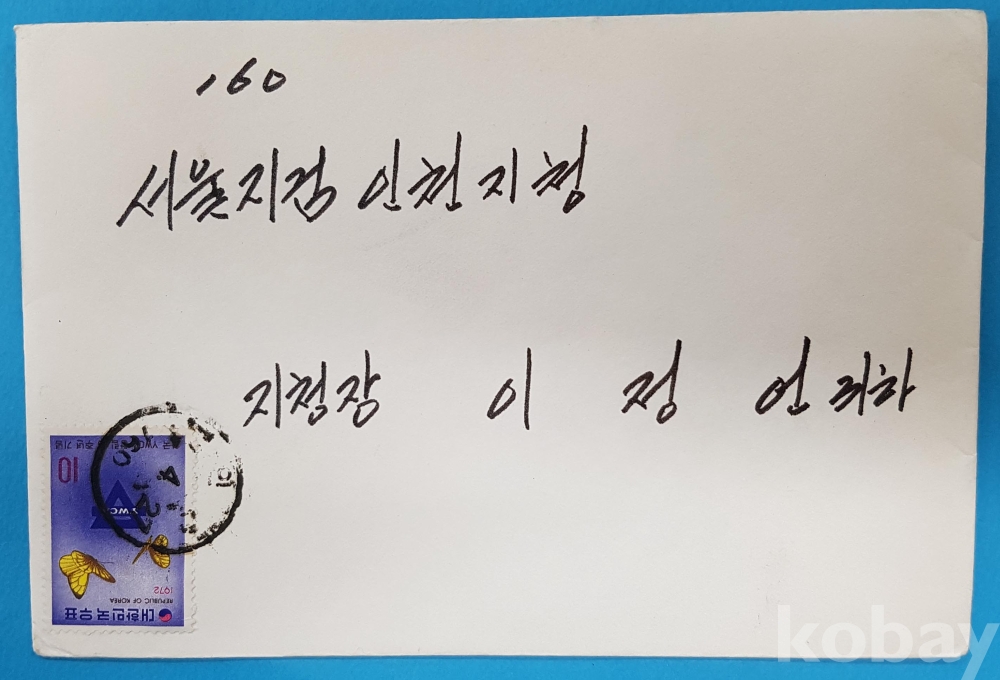 160
서울지검 인천지청
지청장 이 정 언 귀하
10
YWCA
주년 기념
1972
REPUBLIC OF KOREA
대한민국우표
kobay